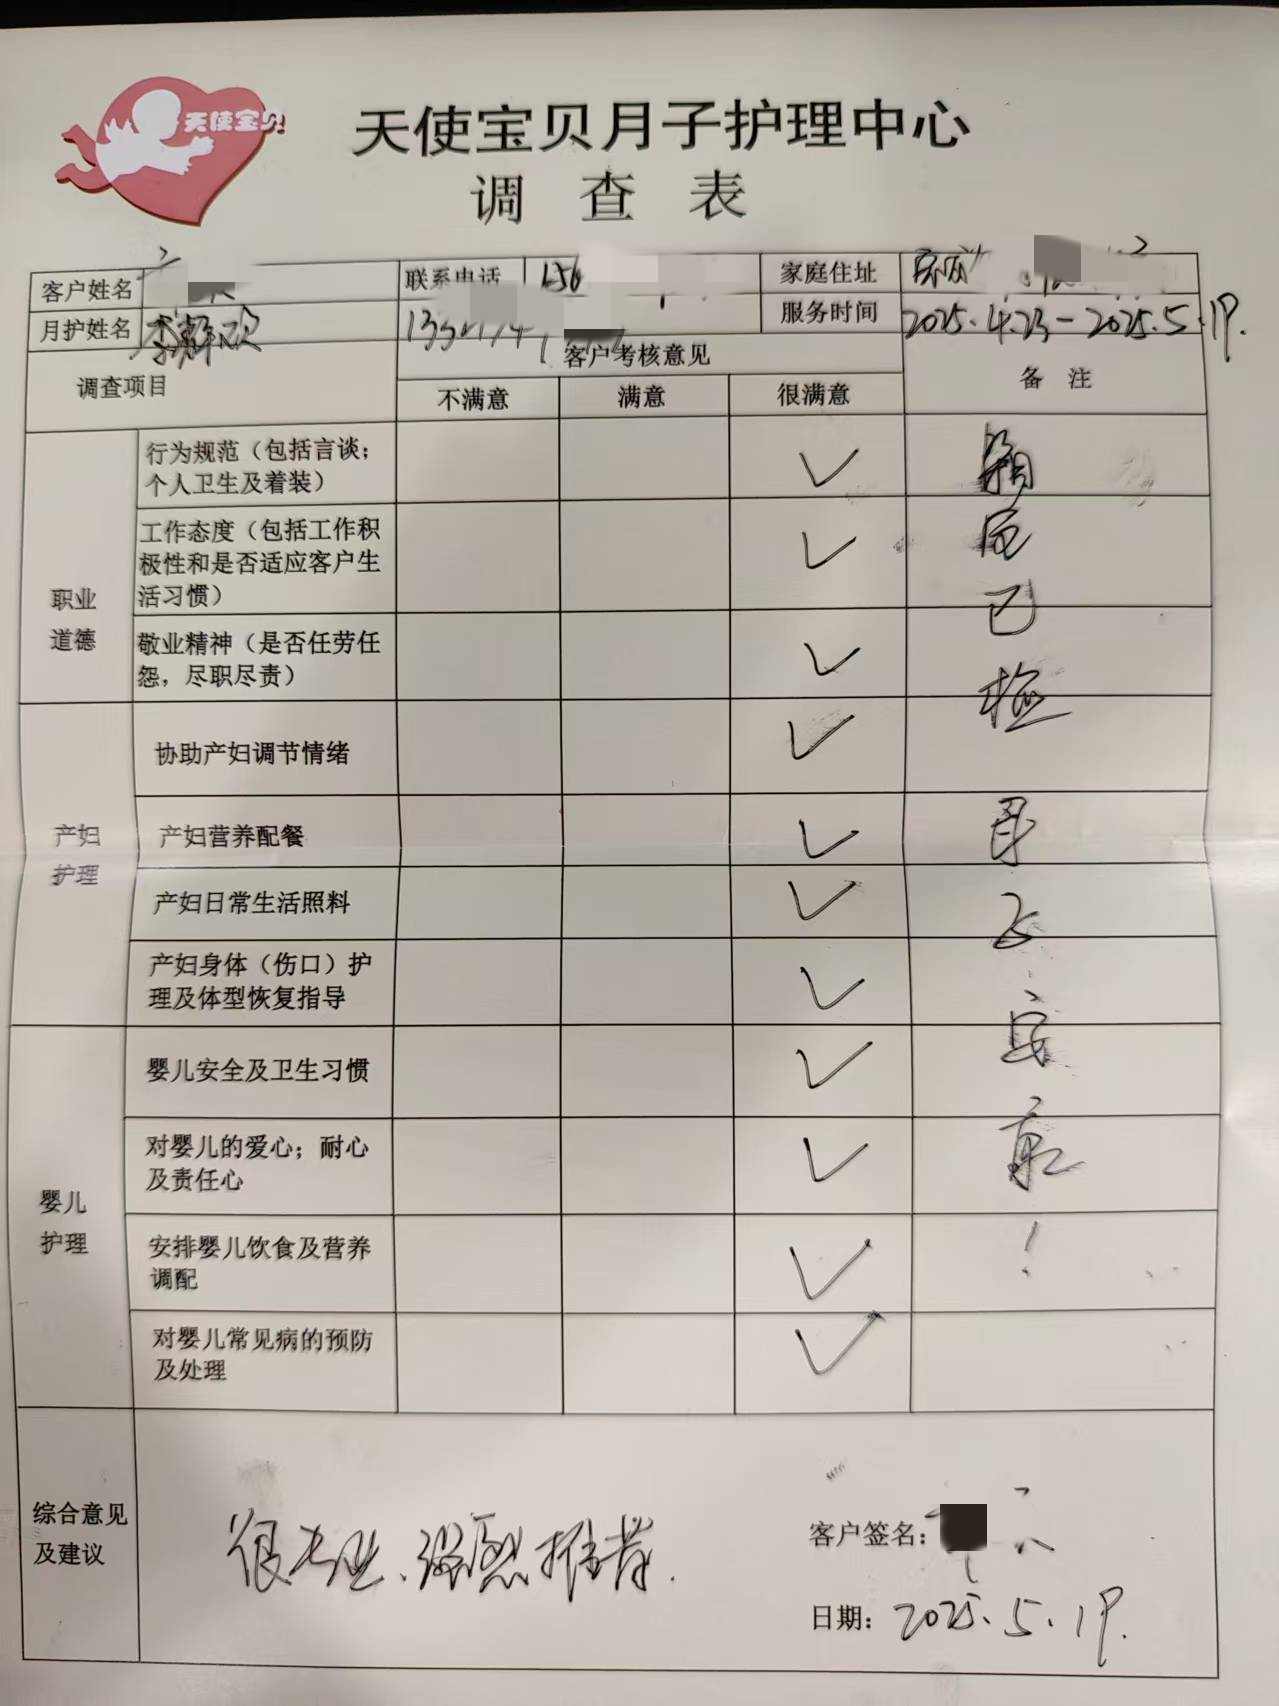 天使宝贝
天使宝贝月子护理中心
调 查 表
客户姓名 联系电话 156 家庭住址
月护姓名 服务时间 2025.4.23-2025.5.19.
调查项目 客户考核意见 备 注
不满意 满意 很满意
职业道德
行为规范（包括言谈；
个人卫生及着装）
工作态度（包括工作积
极性和是否适应客户生
活习惯）
敬业精神（是否任劳任
怨，尽职尽责）
产妇护理
协助产妇调节情绪
产妇营养配餐
产妇日常生活照料
产妇身体（伤口）护
理及体型恢复指导
婴儿护理
婴儿安全及卫生习惯
对婴儿的爱心；耐心
及责任心
安排婴儿饮食及营养
调配
对婴儿常见病的预防
及处理
综合意见
及建议
很专业、强烈推荐.
客户签名：
日期：2025.5.19.